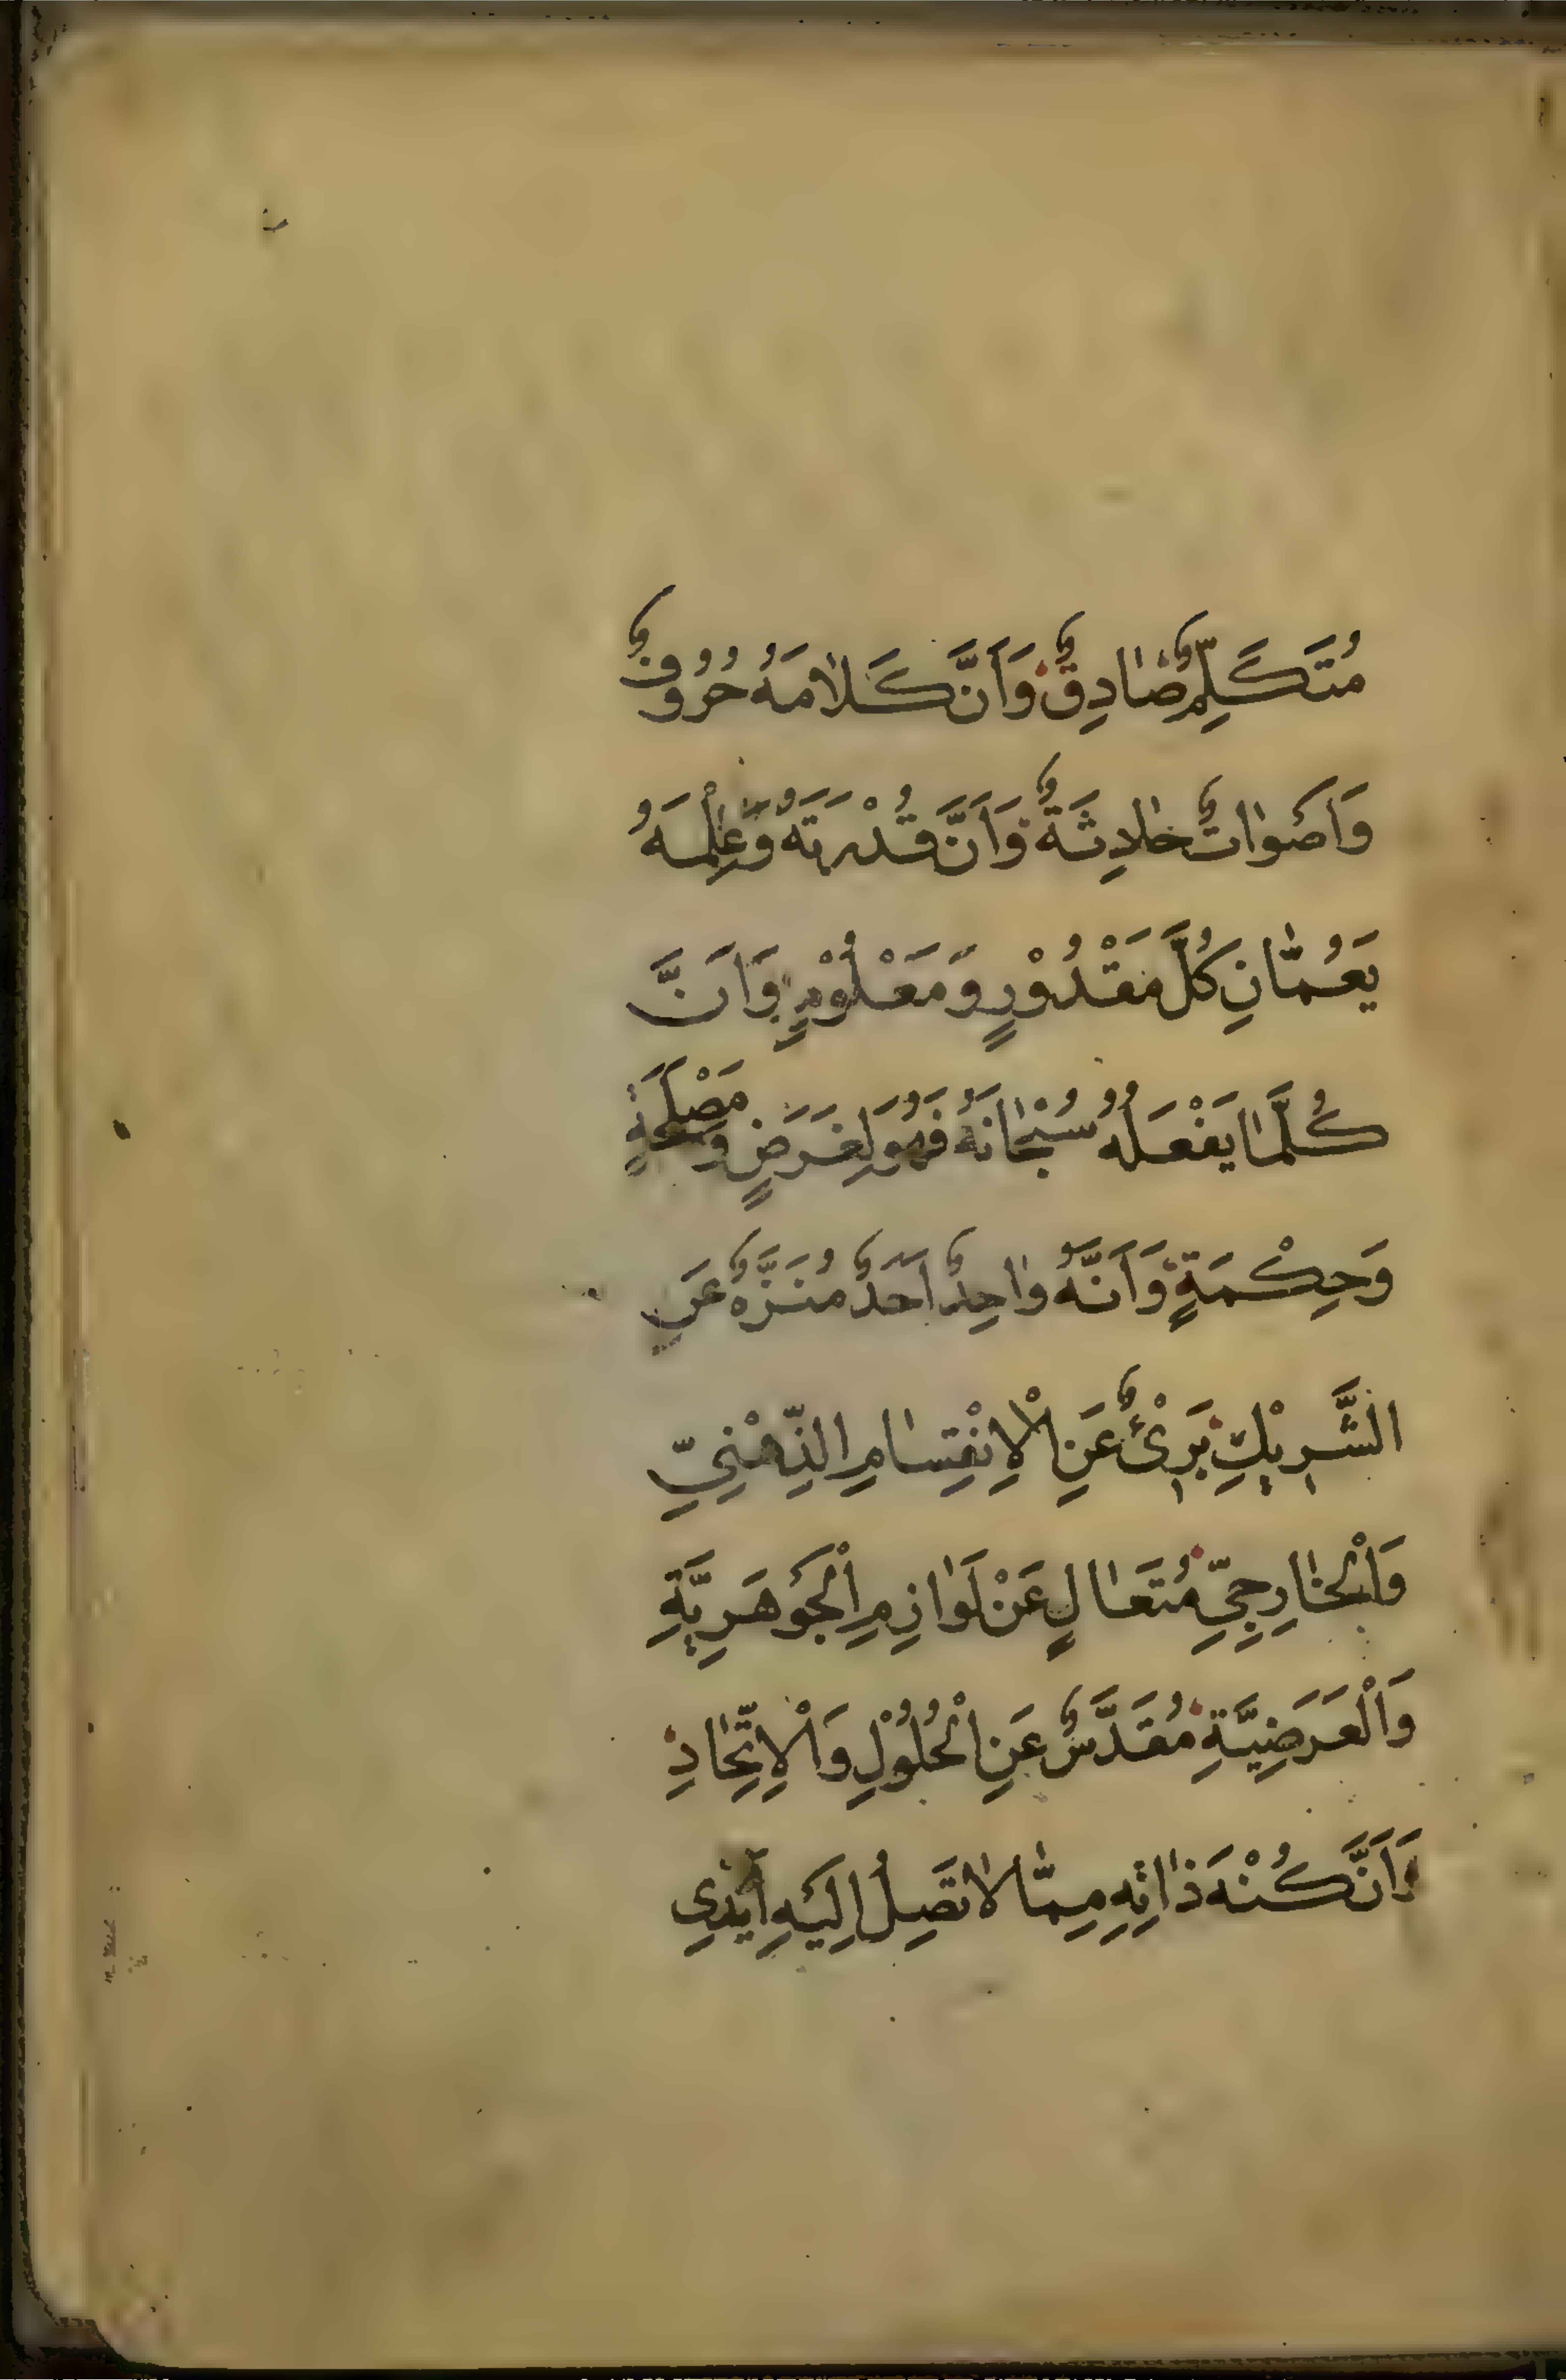 مُتَكَلِّمٌ صَادِقٌ وَاَنَّ كَلَامَهُ حُرُوفٌ
وَاَصَوَاتٌ حَادِثَةٌ وَاَنَّ قُدْرَتَهُ وَعِلْمَهُ
يَعُمَّانِ كُلَّ مَقْدُوْرٍ وَمَعْلُوْمٍ وَاَنَّ
كُلَّمَا يَفْعَلُهُ سُبْحَانَهُ فَهُوَ لِغَرَضٍ وَمَصْلَحَةٍ
وَحِكْمَةٍ وَاَنَّهُ وَاحِدٌ اَحَدٌ مُنَزَّهٌ عَنِ
الشَّرِيْكِ بَرِيْئٌ عَنِ الْاِنْقِسَامِ الذِّهْنِيِّ
وَالْخَارِجِيِّ مُتَعَالٍ عَنْ لَوَازِمِ الْجَوَهَرِيَّةِ
وَالْعَرَضِيَّةِ مُقَدَّسٌ عَنِ الْحُلُوْلِ وَالْاِتِّحَادِ
وَاَنَّ كُنْهَ ذَاتِهِ مِمَّا لَا تَصِلُ اِلَيَهِ اَيْدِي